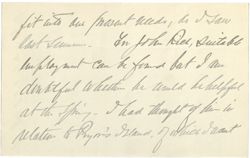 fit into our present needs, as I saw
last summer. For John Reed, suitable
employment can be found but I am
doubtful whether he would be helpful
at the Spring. I had thought of him in
relation to Pryor's Island, of which I want